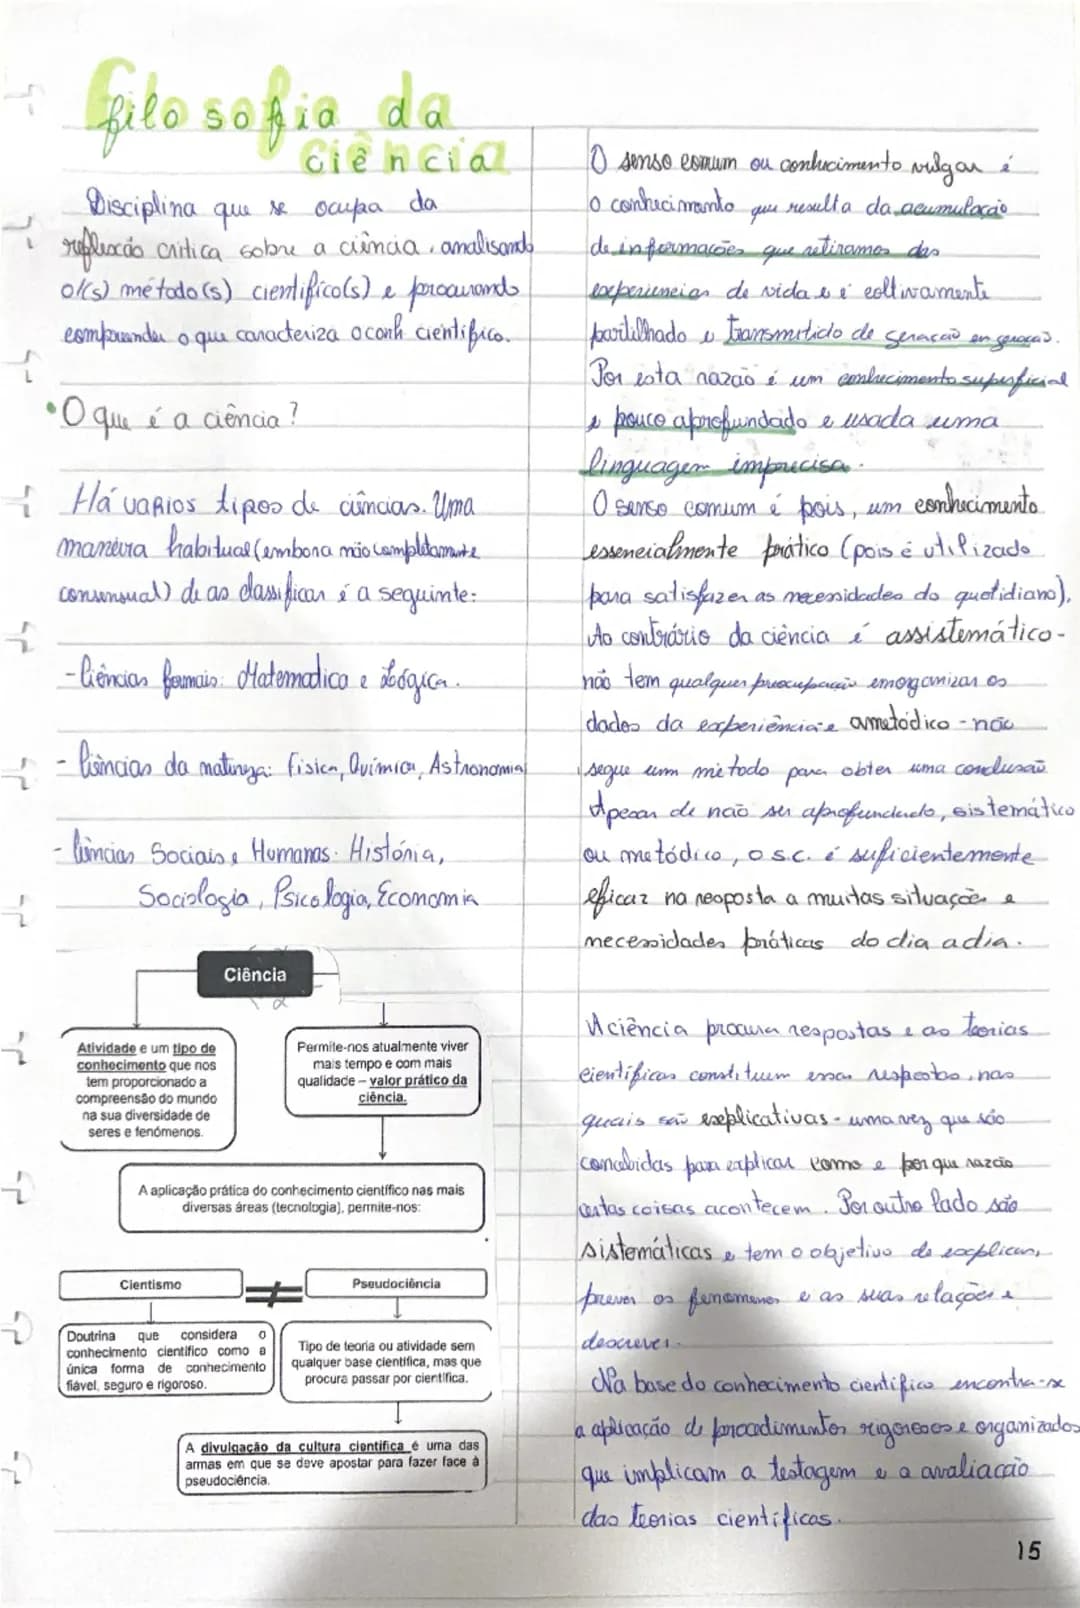 filosofia da
ciência
Disciplina que se ocupa da
reflexão crítica sobre a ciência, analisando
o/(s) método(s) científico(s) e procurando
compreender o que caracteriza o conh científico.
•O que é a ciência?
Há varios tipos de ciências. Uma
maneira habitual (embora não completamente
consensual) de as classificar é a seguinte:
-Ciências formais: Matematica e Lógica.
- Ciências da natureza: Física, Química, Astronomia
- Ciências Sociais e Humanas: História,
Sociologia, Psicologia, Economia
Ciência
Atividade e um tipo de
conhecimento que nos
tem proporcionado a
compreensão do mundo
na sua diversidade de
seres e fenómenos.
Permite-nos atualmente viver
mais tempo e com mais
qualidade – valor prático da
ciência.
A aplicação prática do conhecimento científico nas mais
diversas áreas (tecnologia), permite-nos:
Cientismo
≠
Pseudociência
Doutrina que considera o
conhecimento científico como a
única forma de conhecimento
fiável, seguro e rigoroso.
Tipo de teoria ou atividade sem
qualquer base científica, mas que
procura passar por científica.
A divulgação da cultura científica é uma das
armas em que se deve apostar para fazer face à
pseudociência.
O senso comum ou conhecimento vulgar é
o conhecimento que resulta da acumulação
de informações que retiramos das
experiencias de vida e é coltivamente
partilhado e transmitido de geração en geração.
Por esta razão é um conhecimento superficial
e pouco aprofundado e usada uma
linguagem imprecisa.
O senso comum é pois, um conhecimento
essencialmente prático (pois é utilizado
para satisfazer as necessidades do quotidiano).
Ao contrário da ciência é assistemático-
não tem qualquer preocupação em organizar os
dados da experiência e ametódico - não
segue um método para obter uma conclusão
Apesar de não ser aprofundado, sistemático
ou metódico, o s.c. é suficientemente
eficaz na resposta a muitas situações e
necessidades práticas do dia a dia.
A ciência procura respostas e as teorias
científicas constituem essas respostas, nas
quais são explicativas - uma vez que são
concebidas para explicar como e por que razão
certas coisas acontecem. Por outro lado são
sistemáticas e tem o objetivo de explicar,
prever os fenomenos e as suas relações e
descrever.
Na base do conhecimento científico encontra-se
a aplicação de procedimentos rigorosos e organizados
que implicam a testagem e a avaliação
das teorias científicas.
15